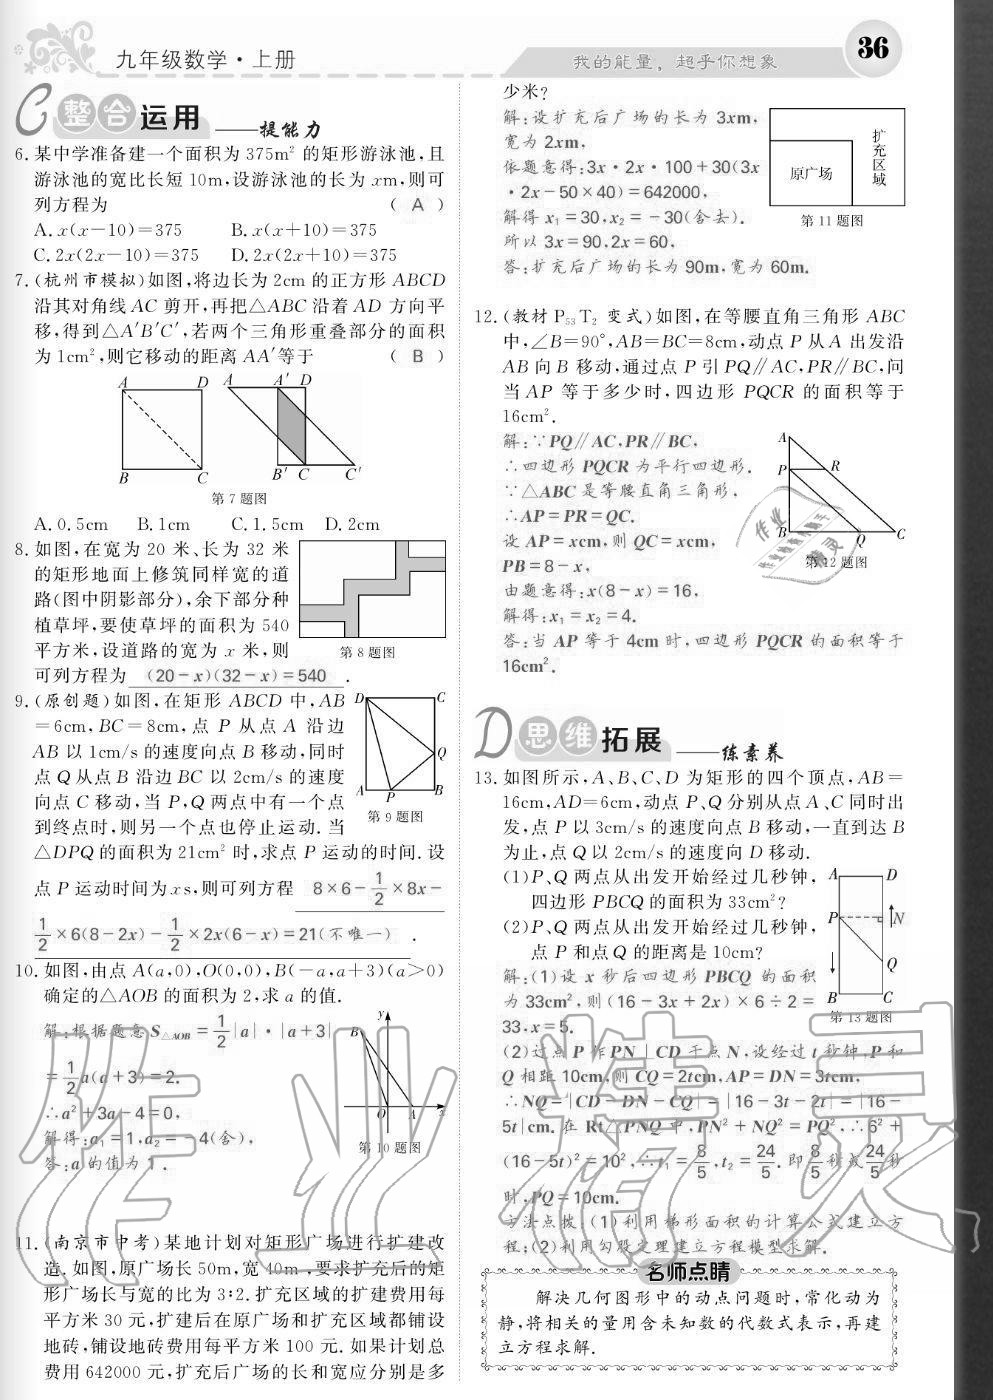 九年级数学·上册
我的能量，超乎你想象
36
C 整合运用 ——提能力
6.某中学准备建一个面积为375m² 的矩形游泳池,且
游泳池的宽比长短10m,设游泳池的长为xm,则可
列方程为 ( A )
A.x(x－10)=375 B.x(x+10)=375
C.2x(2x－10)=375 D.2x(2x+10)=375
7.(杭州市模拟)如图,将边长为2cm的正方形ABCD
沿其对角线AC剪开,再把△ABC沿着AD方向平
移,得到△A′B′C′,若两个三角形重叠部分的面积
为1cm²,则它移动的距离AA′等于 ( B )
A D A A′ D
B C B′ C C′
第7题图
A.0.5cm B.1cm C.1.5cm D.2cm
8.如图,在宽为20米、长为32米
的矩形地面上修筑同样宽的道
路(图中阴影部分),余下部分种
植草坪,要使草坪的面积为540
平方米,设道路的宽为x米,则
第8题图
可列方程为 (20－x)(32－x)=540 .
9.(原创题)如图,在矩形ABCD中,AB
=6cm,BC=8cm,点P从点A沿边
AB以1cm/s的速度向点B移动,同时
点Q从点B沿边BC以2cm/s的速度
向点C移动,当P,Q两点中有一个点
到终点时,则另一个点也停止运动.当
△DPQ的面积为21cm²时,求点P运动的时间.设
D C
Q
A P B
第9题图
点P运动时间为xs,则可列方程 8×6－1/2×8x－
1/2×6(8－2x)－1/2×2x(6－x)=21(不唯一) .
10.如图,由点A(a,0),O(0,0),B(－a,a+3)(a>0)
确定的△AOB的面积为2,求a的值.
解:根据题意S△AOB=1/2|a|·|a+3|
=1/2a(a+3)=2.
∴a²+3a－4=0,
解得:a₁=1,a₂=－4(舍),
答:a的值为1.
y
B
O A x
第10题图
11.(南京市中考)某地计划对矩形广场进行扩建改
造.如图,原广场长50m,宽40m,要求扩充后的矩
形广场长与宽的比为3∶2.扩充区域的扩建费用每
平方米30元,扩建后在原广场和扩充区域都铺设
地砖,铺设地砖费用每平方米100元.如果计划总
费用642000元,扩充后广场的长和宽应分别是多
少米?
解:设扩充后广场的长为3xm,
宽为2xm,
依题意得:3x·2x·100+30(3x
·2x－50×40)=642000,
解得x₁=30,x₂=－30(舍去).
所以3x=90,2x=60,
答:扩充后广场的长为90m,宽为60m.
原广场
扩充区域
第11题图
12.(教材P₅₃T₂变式)如图,在等腰直角三角形ABC
中,∠B=90°,AB=BC=8cm,动点P从A出发沿
AB向B移动,通过点P引PQ∥AC,PR∥BC,问
当AP等于多少时,四边形PQCR的面积等于
16cm².
解:∵PQ∥AC,PR∥BC,
∴四边形PQCR为平行四边形.
∵△ABC是等腰直角三角形,
∴AP=PR=QC.
设AP=xcm,则QC=xcm,
PB=8－x,
由题意得:x(8－x)=16,
解得:x₁=x₂=4.
答:当AP等于4cm时,四边形PQCR的面积等于
16cm².
A
P R
B Q C
第12题图
D 思维拓展 ——练素养
13.如图所示,A、B、C、D为矩形的四个顶点,AB=
16cm,AD=6cm,动点P、Q分别从点A、C同时出
发,点P以3cm/s的速度向点B移动,一直到达B
为止,点Q以2cm/s的速度向D移动.
(1)P、Q两点从出发开始经过几秒钟,
四边形PBCQ的面积为33cm²?
(2)P、Q两点从出发开始经过几秒钟,
点P和点Q的距离是10cm?
A D
P N
Q
B C
第13题图
解:(1)设x秒后四边形PBCQ的面积
为33cm²,则(16－3x+2x)×6÷2=
33,x=5.
(2)过点P作PN⊥CD于点N,设经过t秒钟,P和
Q相距10cm,则CQ=2tcm,AP=DN=3tcm,
∴NQ=|CD－DN－CQ|=|16－3t－2t|=|16－
5t|cm.在Rt△PNQ中,PN²+NQ²=PQ²,∴6²+
(16－5t)²=10²,∴t₁=8/5,t₂=24/5.即8/5秒或24/5秒
时,PQ=10cm.
方法点拨:(1)利用梯形面积的计算公式建立方
程;(2)利用勾股定理建立方程模型求解.
名师点睛
解决几何图形中的动点问题时,常化动为
静,将相关的量用含未知数的代数式表示,再建
立方程求解.
作业精灵